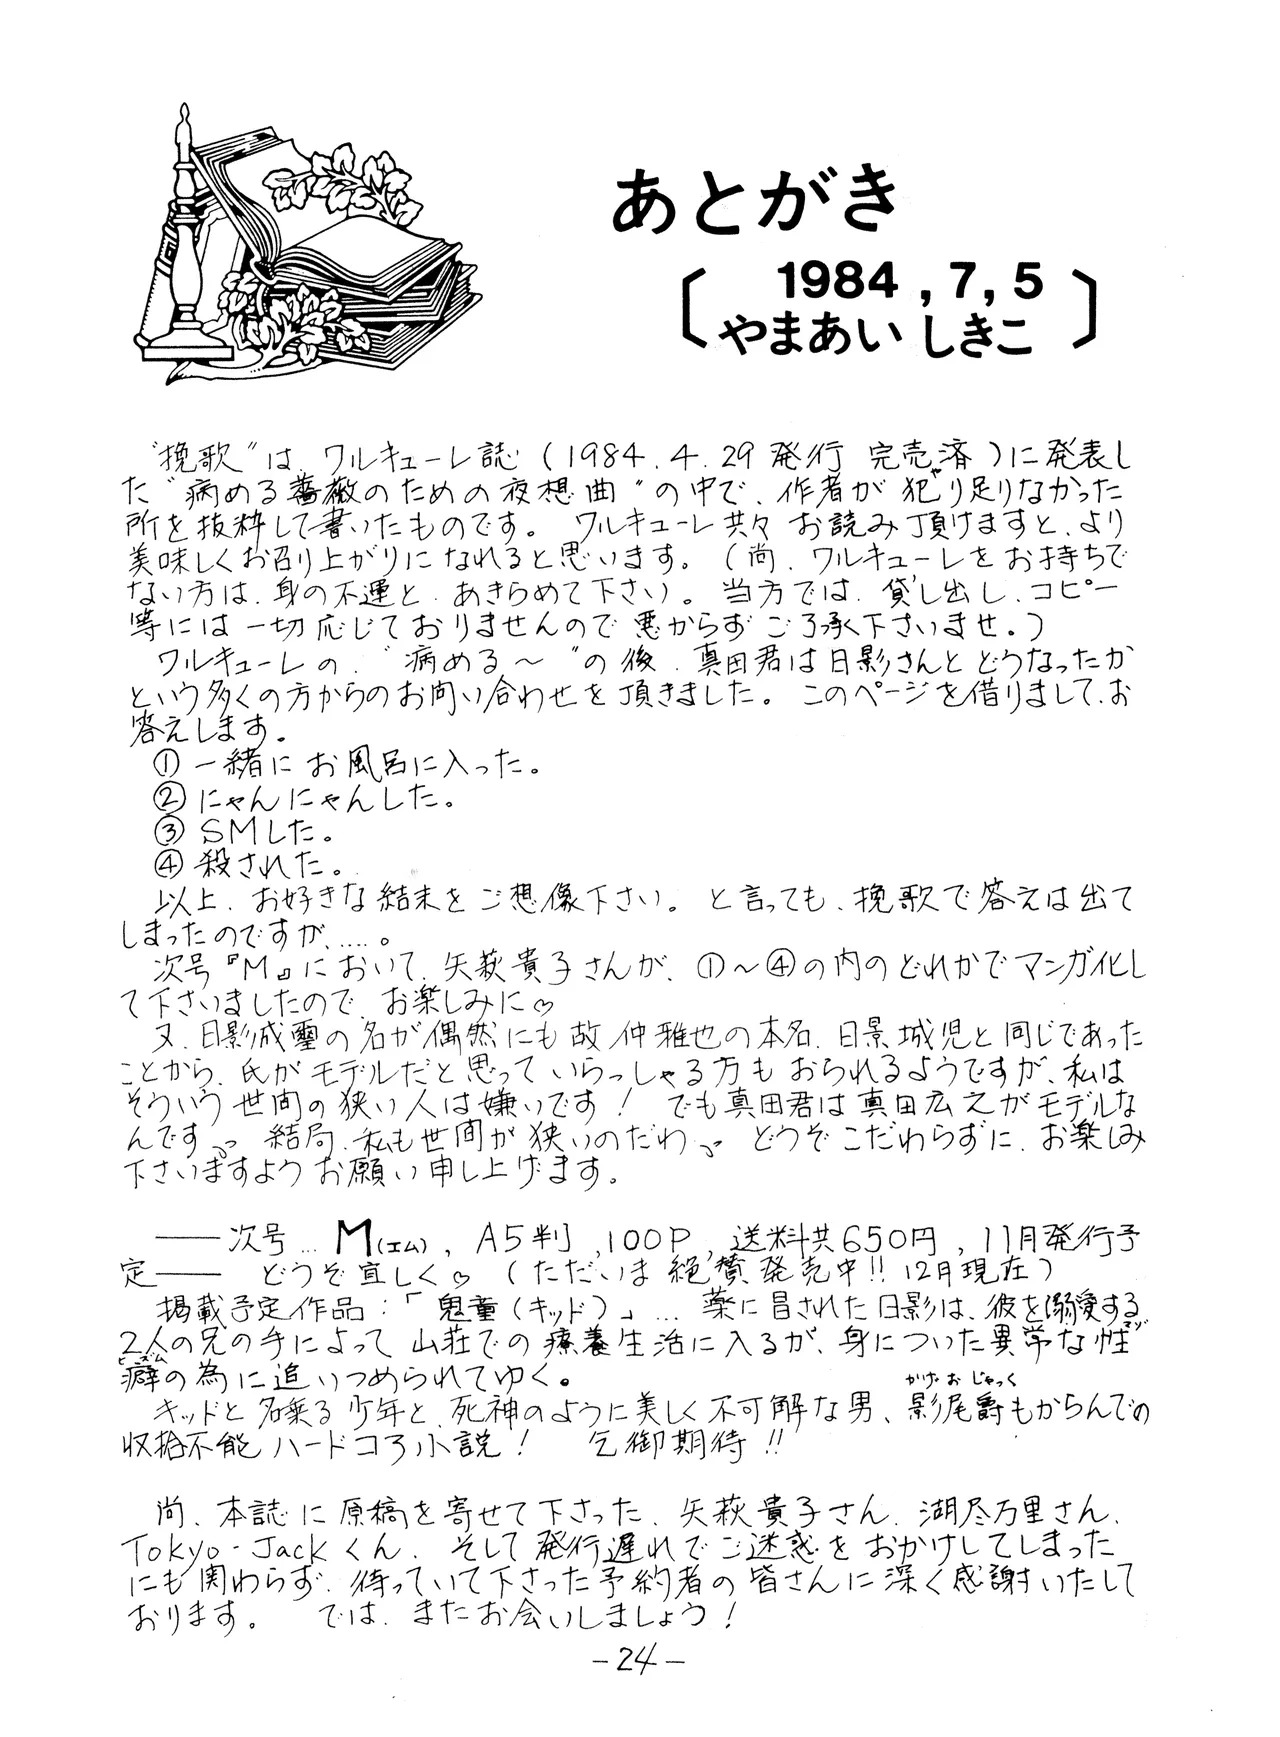 あとがき
1984,7,5
やまあい しきこ
“挽歌”は、ワルキューレ誌(1984.4.29発行 完売済)に発表し
た“病める薔薇のための夜想曲”の中で、作者が犯り足りなかった
所を抜粋して書いたものです。 ワルキューレ共々お読み頂けますと、より
美味しくお召り上がりになれると思います。(尚、ワルキューレをお持ちで
ない方は、身の不運と、あきらめて下さい。 当方では、貸し出し、コピー
等には一切応じておりませんので悪からずご了承下さいませ。)
ワルキューレの、“病める〜”の後、真田君は日影さんとどうなったか
という多くの方からのお問い合わせを頂きました。 このページを借りまして、お
答えします。
① 一緒にお風呂に入った。
② にゃんにゃんした。
③ SMした。
④ 殺された。
以上、お好きな結末をご想像下さい。 と言っても、挽歌で答えは出て
しまったのですが、....。
次号『M』において、矢萩貴子さんが、①〜④の内のどれかでマンガ化し
て下さいましたので、お楽しみに♡
又、日影成璽の名が偶然にも故仲雅也の本名、日景城児と同じであった
ことから、氏がモデルだと思っていらっしゃる方もおられるようですが、私は
そういう世間の狭い人は嫌いです! でも真田君は真田広之がモデルな
んです 結局、私も世間が狭いのだわ どうぞこだわらずに、お楽しみ
下さいますようお願い申し上げます。
―― 次号…M(エム)、A5判、100P、送料共650円、11月発行予
定―― どうぞ宜しく♡ (ただいま絶賛発売中!! 12月現在)
掲載予定作品:「鬼童(キッド)」… 薬に冒された日影は、彼を溺愛する
2人の兄の手によって山荘での療養生活に入るが、身についた異常な性
癖の為に追いつめられてゆく。
キッドと名乗る少年と、死神のように美しく不可解な男、影尾爵もからんでの
収拾不能ハードコア小説! 乞御期待!!
尚、本誌に原稿を寄せて下さった、矢萩貴子さん、湖尽万里さん、
Tokyo-Jackくん、そして発行遅れでご迷惑をおかけしてしまった
にも関わらず、待っていて下さった予約者の皆さんに深く感謝いたして
おります。 では、またお会いしましょう!
-24-